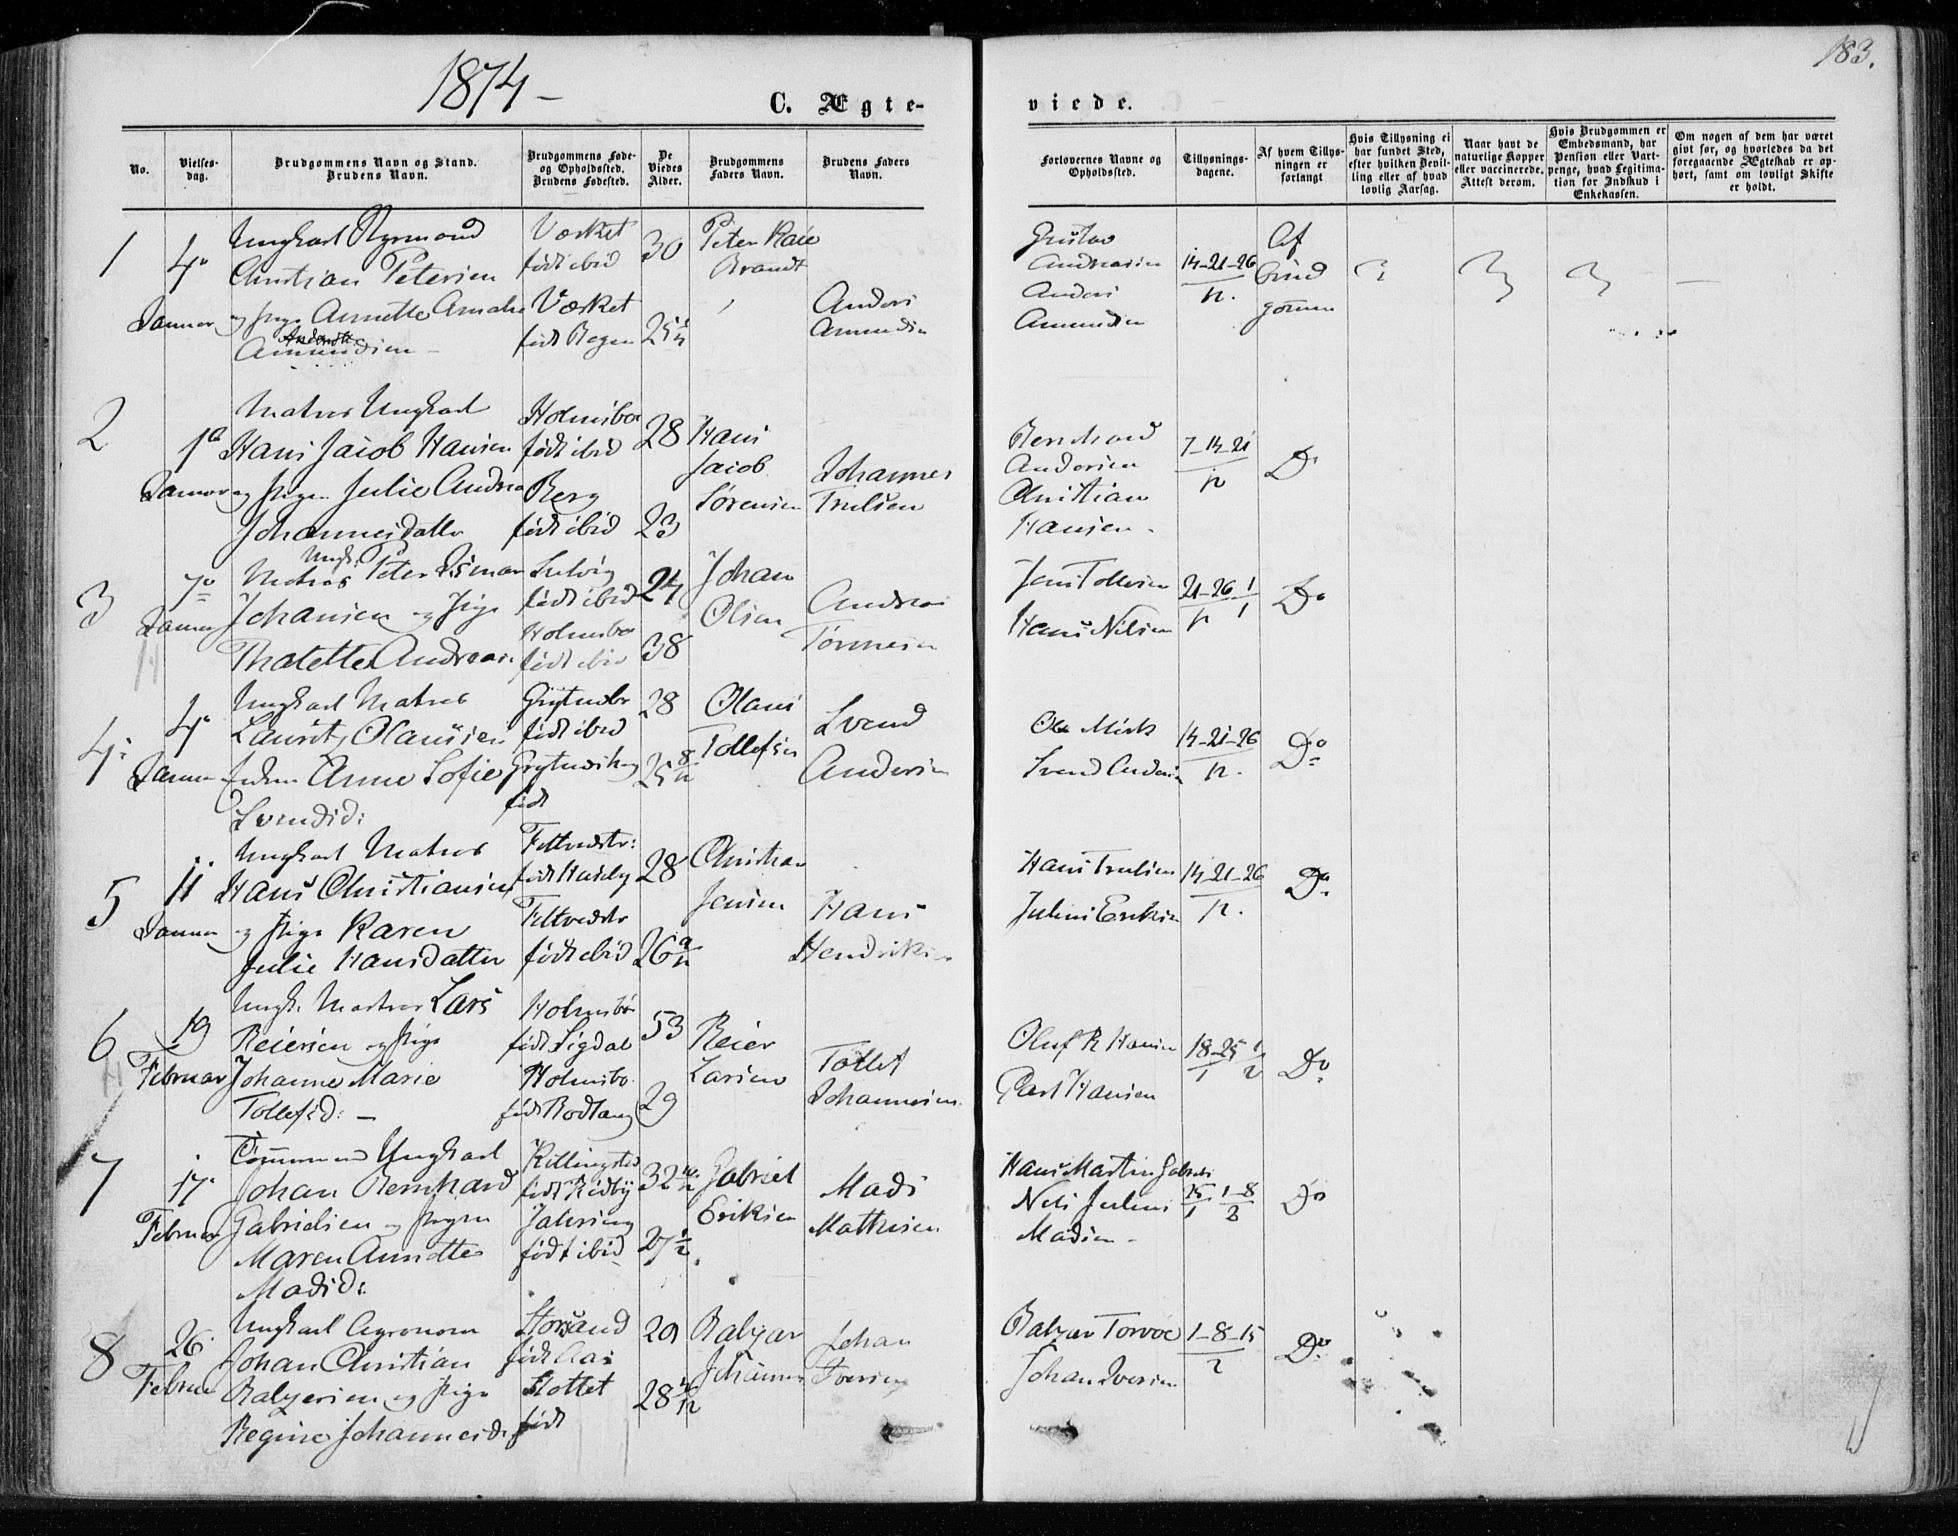 183.
1874 –
C. Ægte-
viede.
No.
Vielses-
dag.
Brudgommens Navn og Stand.
Brudens Navn.
Brudgommens Føde-
og Opholdssted.
Brudens Fødested.
De
Viedes
Alder.
Brudgommens
Faders Navn.
Brudens Faders
Navn.
Forlovernes Navne og
Opholdssted.
Tillysnings-
dagene.
Af hvem Tillys-
ningen er
forlangt
Hvis Tillysning ei
har fundet Sted,
efter hvilken Bevil-
ling eller af hvad
lovlig Aarsag.
Naar havt de
naturlige Kopper
eller vaccinerede.
Attest derom.
Hvis Brudgommen er
Embedsmand, har
Pension eller Vart-
penge, hvad Legitima-
tion for Indskud i
Enkekassen.
Om nogen af dem har været
givt før, og hvorledes da det
foregaaende Ægteskab er op-
hørt, samt om lovligt Skifte
er holdt.
1
4
Januar
Ungkarl
Christian Petersen
og Pige Annette
Amundsen –
Værket
født ibid
Værket
født
30
25
Peter
Brandt
Anders
Amundsen
Gustav
Andreasen
Anders
Amundsen
14–21–26
12.
Af
Brud
gommen
2
1
Januar
Matros Ungkarl
Hans Jacob Hansen
og Pigen Julie Andrea
Johannesdatter
Holmsbo
født ibid
Berg
født ibid
28
23
Hans
Jacob
Sørensen
Johannes
Trulsen
Bernhard
Andersen
Christian
Hansen.
7–14–21
12
Do
3
7
Januar
Ungk.
Matros Peter
Johansen og Pige
Andreas.
Selvig
født ibid
Holmsbo
født ibid
24
38
Johan
Olsen
Andreas
Hans Nilsen
21–26 1
12 1
Do
4
4
Januar
Ungkarl Matros
Lauritz Olaussen
Anne Sofie
Svendsd:
født ibid
født
28
25 8/12
Olaus
Tollefsen
Svend
Andersen
Ole
Svend Andersen
14–21–26
12.
Do
5
11
Januar
Ungkarl Matros
Hans Christiansen
og Pige Karen
Julie Hansdatter
født
født ibid
28
26 9/12
Christian
Jensen
Hans
Hendriksen
Hans Trulsen
Julius Eriksen
14–21–26
12.
Do
6
19
Februar
Ungk. Matros Lars
Reiersen og Pige
Johanne Marie
Tollefsd: –
Holmsbo
født Sigdal
Holmsbo
født Rødtang
53
29
Reier
Larsen
Tollef
Johannesen
Oluf R Hansen
Carl Hansen
18–25 1
1 2
Do
7
17
Februar
Tømmermand Ungkarl
Johan Bernhard
Gabrielsen og Pigen
Maren Annette
Madsd:
født
født ibid
32
27 1/2
Gabriel
Eriksen
Mads
Mathisen
Hans Martin Gabriels
Nils Julius
Madsen –
25 1–8
1 2
Do
8
26
Februar
Ungkarl Agronom
Johan Christian
Balzersen og Pige
Regine Johannesd.
Storsand
født Aas
Slottet
født
29
28
Balzar
Johannes
Johan
Iversen
Balzar Torvøe
Johan Iversen
1–8–15
2
Do